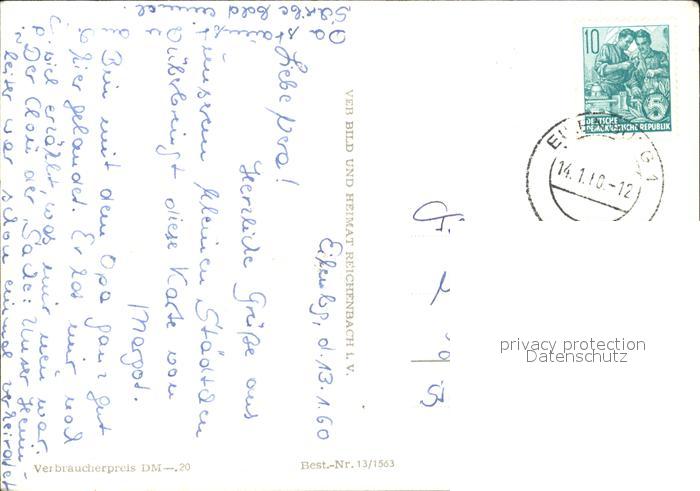 Eilenbg, d. 13.1.60
Liebe Vera!
Herzliche Grüße aus
unserem kleinen Städtchen
überbringt diese Karte von
Margot.
Bin mit dem Opa ganz gut
hier gelandet. Er hat mir noch
viel erzählt, was mir neu war.
Der Clou der "Sache": Unser Heim-
leiter war schon einmal verheiratet
Schreibe bald einmal
VEB BILD UND HEIMAT REICHENBACH I. V.
Verbraucherpreis DM —.20
Best.-Nr. 13/1563
10
5
DEUTSCHE
DEMOKRATISCHE REPUBLIK
14.1.60.-12
privacy protection
Datenschutz